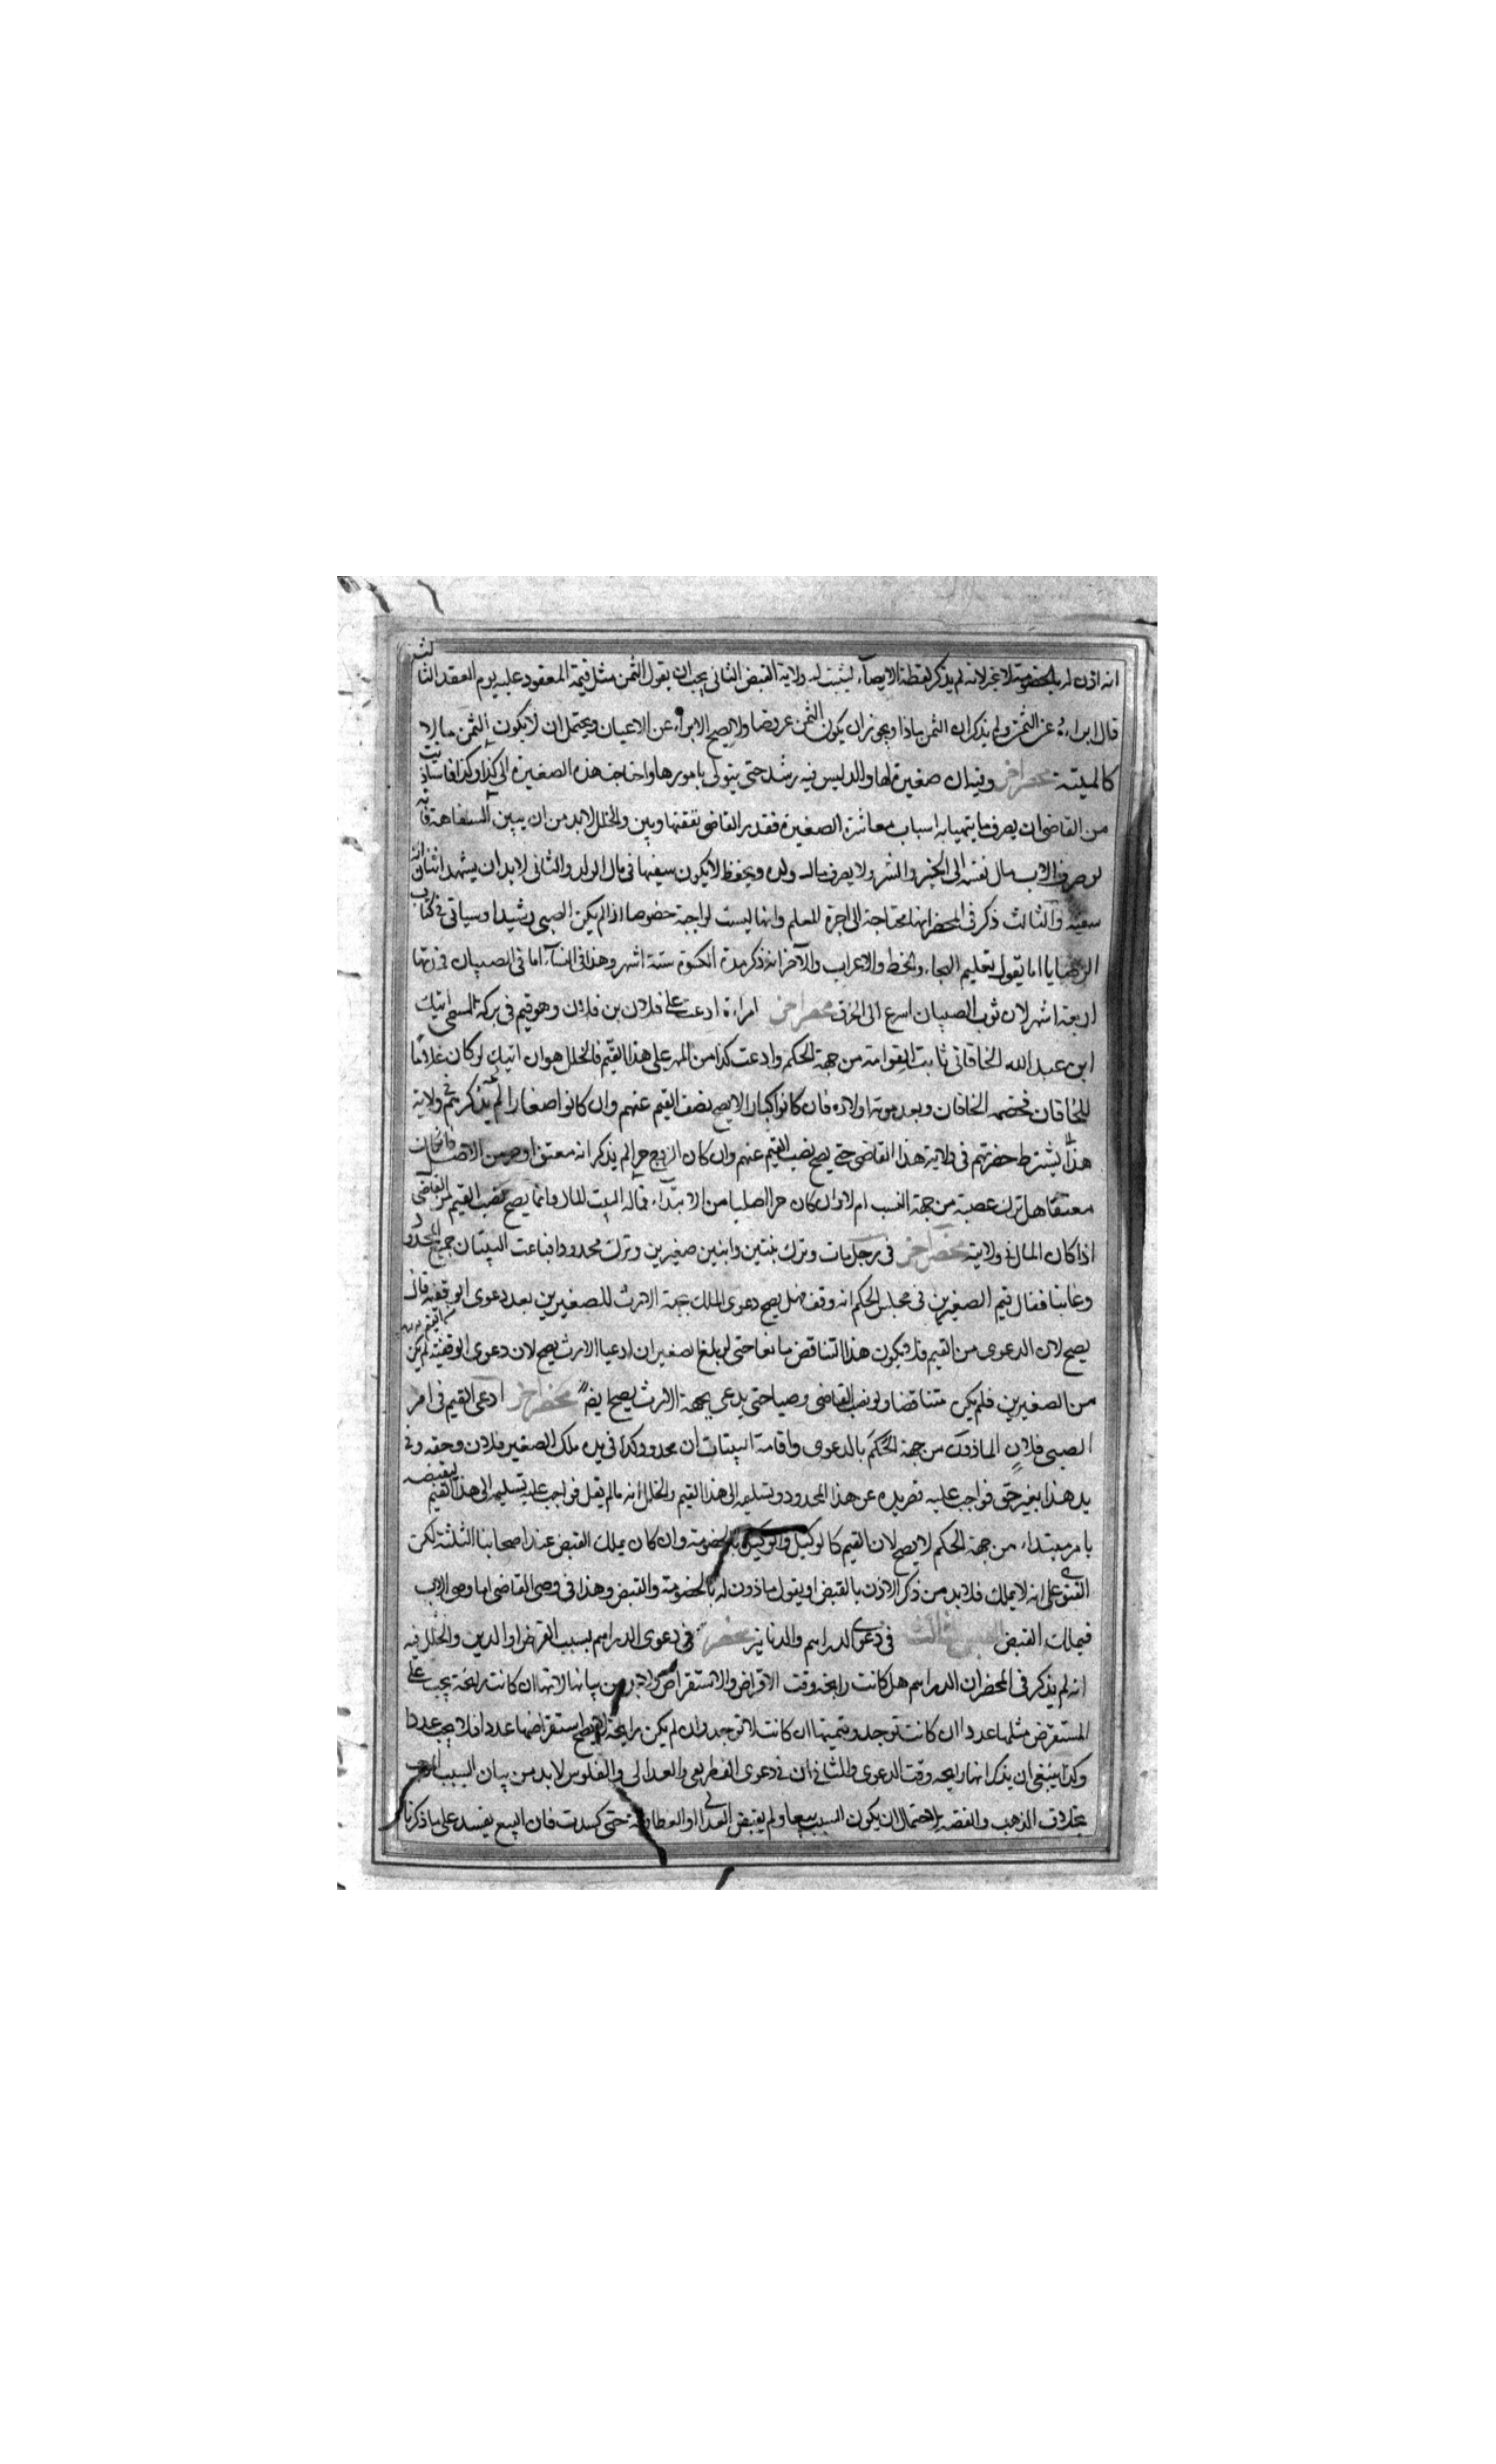 انه اذن له بالخصومة لا غير لانه لم يذكر لفظة الايصآء ليثبت له ولاية القبض الثانى يجب ان يقول الثمن مثل قيمة المعقود عليه يوم العقد الثالث
قال ابراءهُ عن الثمن ولم يذكر ان الثمن ماذا ويجوز ان يكون الثمن عروضا ولا يصح الابراء عن الاعيان ويحتمل ان لا يكون الثمن مالا
كالميتة محضر اخر وفيه ان صغيرة لها والد ليس فيه رشد حتى يتولى بامورها واحتاجت هذه الصغيرة الى كذا وكذا
من القاضى ان يصرف ما يتهيا به اسباب معاشرة الصغيرة فقدر القاضى نفقتها وبين والخلل لابد من ان يبين السفاهة فانه
لو صرف الاب مال نفسه الى الخير والشر ولا يصرف مال ولده ويحفظ لا يكون سفيها فى مال الولد والثانى لابد ان يشهد اثنان انه
سفيه والثالث ذكر فى المحضر انها محتاجة الى اجرة المعلم وانها ليست لواجبة خصوصا اذا لم يكن الصبى رشيدا وسياتى فى كتاب
الوصايا اما يقول بتعليم الهجاء والخط والاعراب والآخر انه ذكر مدة الكسوة ستة اشهر وهذا فى النسآء اما فى الصبيان فمدتها
اربعة اشهر لان ثوب الصبيان اسرع الى الخرق محضر اخر امراءة ادعت على فلان بن فلان وهو قيم فى تركة المسمى اتيك
ابن عبد الله الخاقانى ثابت القوامة من جهة الحكم وادعت كذا من المهر على هذا القيم فالخلل هو ان اتيك لو كان غلاما
للخاقان فخصمه الخاقان وبعد موته اولاده فان كانوا كبارا لا يصح نصب القيم عنهم وان كانوا صغارا لم يذكر ثم ولاية
هذا يشترط حضرتهم فى ولاية هذا القاضى حتى يصح نصب القيم عنهم وان كان الزوج حرا لم يذكر انه معتق او حر من الاصل فان كان
معتقا هل ترك عصبة من جهة النسب ام لا وان كان حرا اصليا من الابتدآء فماله لبيت المال وانما يصح نصب القيم من القاضى
اذا كان المال فى ولايته محضر اخر فى رجل مات وترك بنتين وابنين صغيرين وترك محدودا فباعت البنتان جميع المحدود
وغابتا فقال قيم الصغيرين فى مجلس الحكم انه وقف فهل يصح دعوى الملك بجهة الارث للصغيرين بعد دعوى الوقفية قال
يصح لان الدعوى من القيم فلا يكون هذا التناقض مانعا حتى لو بلغا الصغيران ادعيا الارث يصح لان دعوى الوقفية لم يكن
من الصغيرين فلم يكن متناقضا ولو نصب القاضى وصيا حتى يدعى بجهة الارث يصح ايضا محضر اخر ادعى القيم فى امر
الصبى فلان الماذون من جهة الحكم بالدعوى واقامة البينات ان محدود وكذا فى يده ملك الصغير فلان وحقه وفى
يد هذا بغير حق فواجب عليه قصر يده عن هذا المحدود وتسليمه الى هذا القيم والخلل انه مالم يقل فواجب عليه تسليمه الى هذا القيم ليقبضه
بامر مبتداء من جهة الحكم لا يصح لان القيم كالوكيل والوكيل بالخصومة وان كان يملك القبض عند اصحابنا الثلثة لكن
الفتوى على انه لا يملك فلابد من ذكر الاذن بالقبض او يقول ماذون له بالخصومة والقبض وهذا فى وصى القاضى اما وصى الاب
فيملك القبض الجنس الثالث فى دعوى الدراهم والدنانير محضر فى دعوى الدراهم بسبب القرض او الدين والخلل فيه
انه لم يذكر فى المحضر ان الدراهم هل كانت رايجة وقت الاقراض والاستقراض ولابد من بيانها لانها ان كانت رايجة يجب على
المستقرض مثلها عددا ان كانت توجد وقيمتها ان كانت لا توجد وان لم يكن رايجة لا يصح استقراضها عددا فلا يجب عددا
وكذا ينبغى ان يذكر انها رايجة وقت الدعوى والثانى ان فى دعوى الغطريفى والعدالى والفلوس لابد من بيان السبب
بخلاف الذهب والفضة لاحتمال ان يكون السبب بيعا ولم يقبض العدالى او الغطارفة حتى كسدت فان البيع يفسد على ما ذكرنا